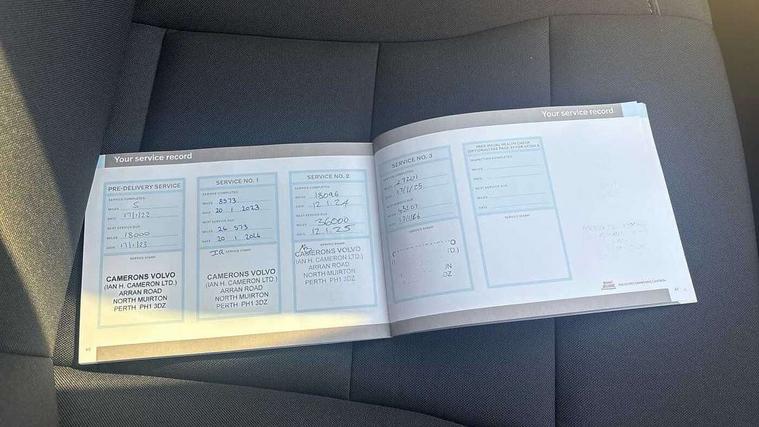 Your service record
PRE-DELIVERY SERVICE
SERVICE COMPLETED:
MILES 5
DATE 17/1/22
NEXT SERVICE DUE
MILES 18000
DATE 17/1/23
SERVICE STAMP
CAMERONS VOLVO
(IAN H. CAMERON LTD.)
ARRAN ROAD
NORTH MUIRTON
PERTH PH1 3DZ
SERVICE NO. 1
SERVICE COMPLETED:
MILES 8573
DATE 20 1 2023
NEXT SERVICE DUE
MILES 26 573
DATE 20 1 2024
SERVICE STAMP
CAMERONS VOLVO
(IAN H. CAMERON LTD.)
ARRAN ROAD
NORTH MUIRTON
PERTH PH1 3DZ
SERVICE NO. 2
SERVICE COMPLETED:
MILES 18096
DATE 12.1.24
NEXT SERVICE DUE
MILES 36000
DATE 12.1.25
SERVICE STAMP
CAMERONS VOLVO
(IAN H. CAMERON LTD.)
ARRAN ROAD
NORTH MUIRTON
PERTH PH1 3DZ
Your service record
SERVICE NO. 3
27201
17/1/25
SERVICE STAMP
DZ
NEXT SERVICE DUE
MILES
DATE
SERVICE STAMP